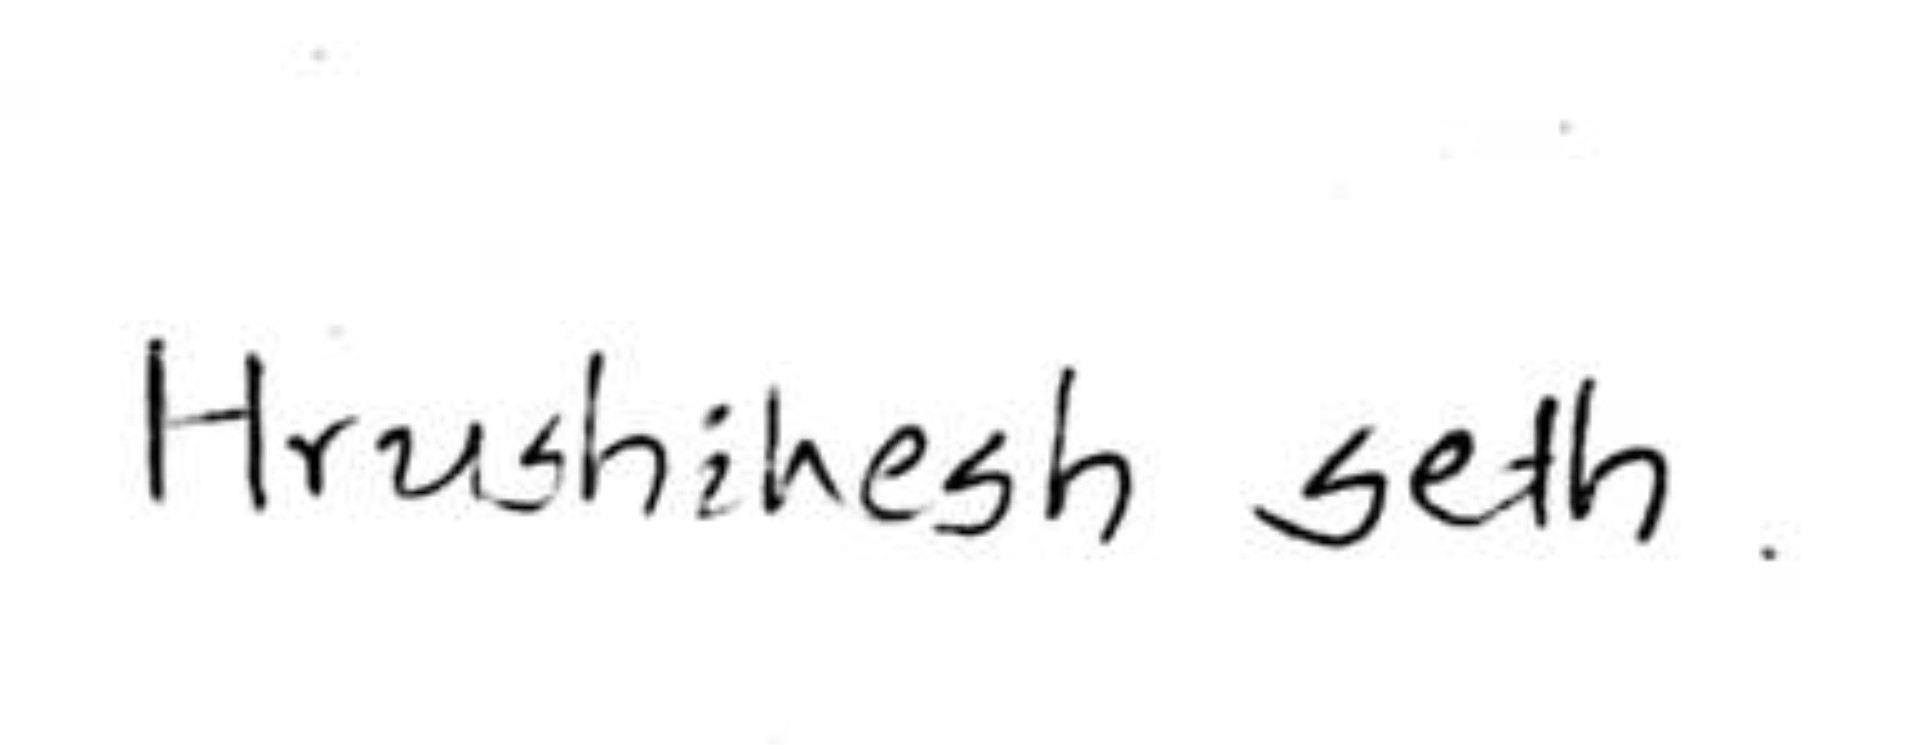 Hrushikesh seth.